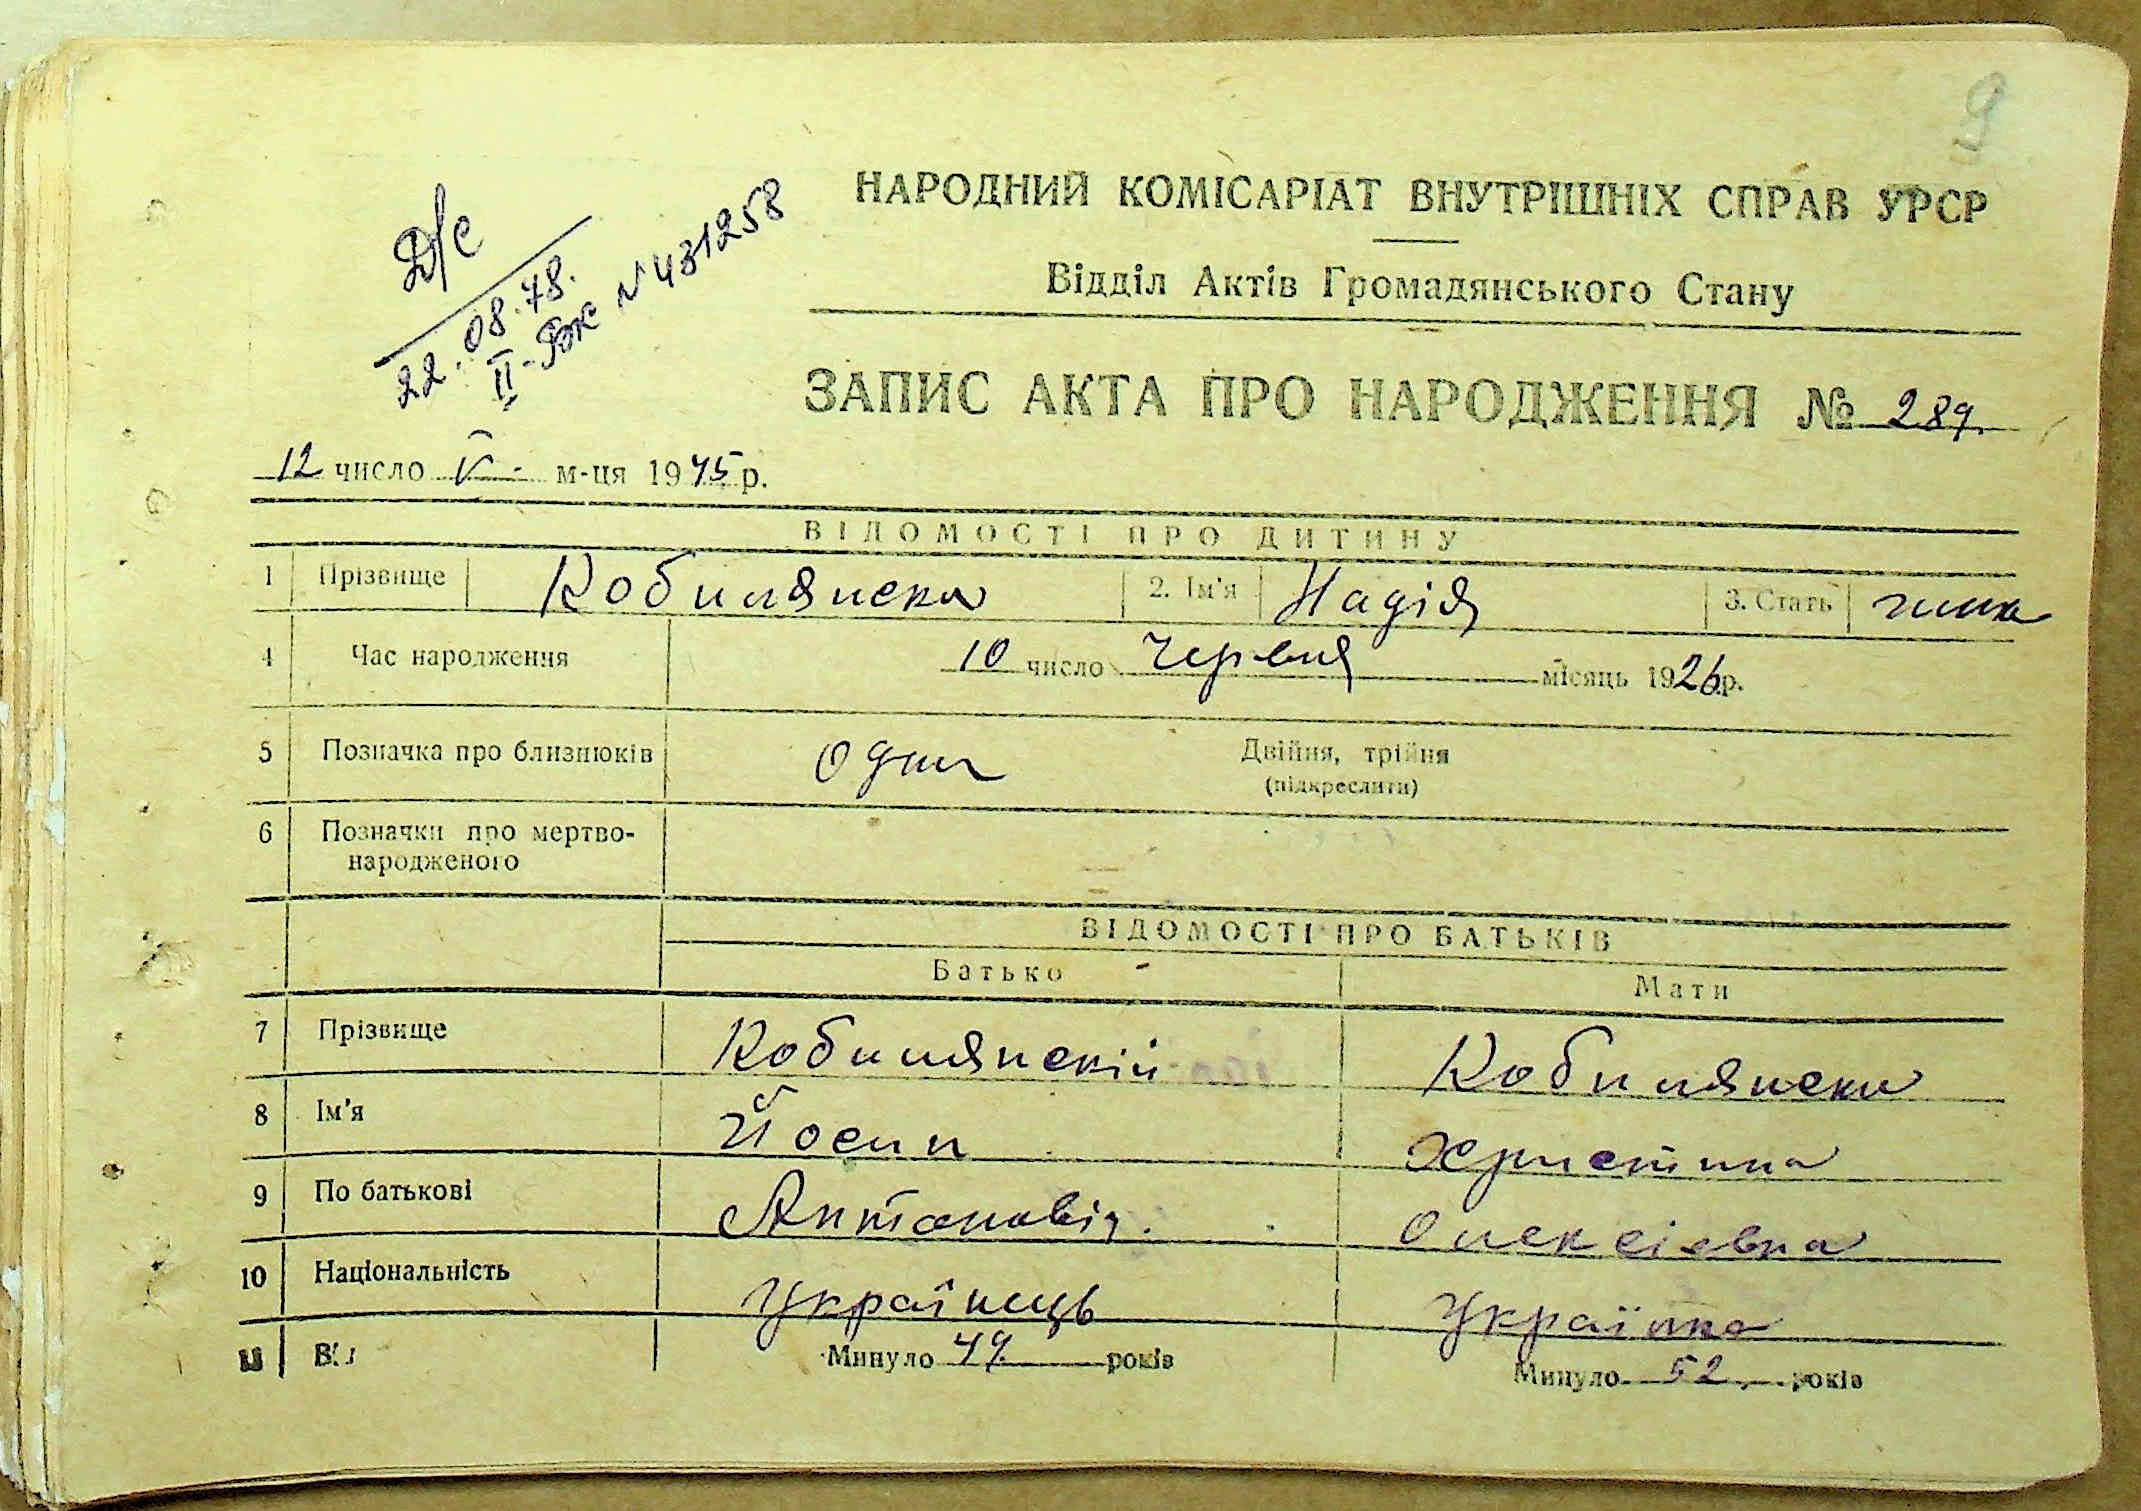 9
НАРОДНИЙ КОМІСАРІАТ ВНУТРІШНІХ СПРАВ УРСР
Відділ Актів Громадянського Стану
Д/с
22.08.78.
II-ЯЖ № 431258
ЗАПИС АКТА ПРО НАРОДЖЕННЯ № 289.
12 число V - м-ця 1945 р.
ВІДОМОСТІ ПРО ДИТИНУ
1 Прізвище Кобилянска 2. Ім'я Надія 3. Стать жінка
4 Час народження 10 число червня місяць 1926 р.
5 Позначка про близнюків один Двійня, трійня
(підкреслити)
6 Позначки про мертво-
народженого
ВІДОМОСТІ ПРО БАТЬКІВ
Батько Мати
7 Прізвище Кобилянскій Кобилянска
8 Ім'я Йосип Христина
9 По батькові Антановіч. Олексієвна
10 Національність Українець Українка
11 Минуло 49 років Минуло 52 років